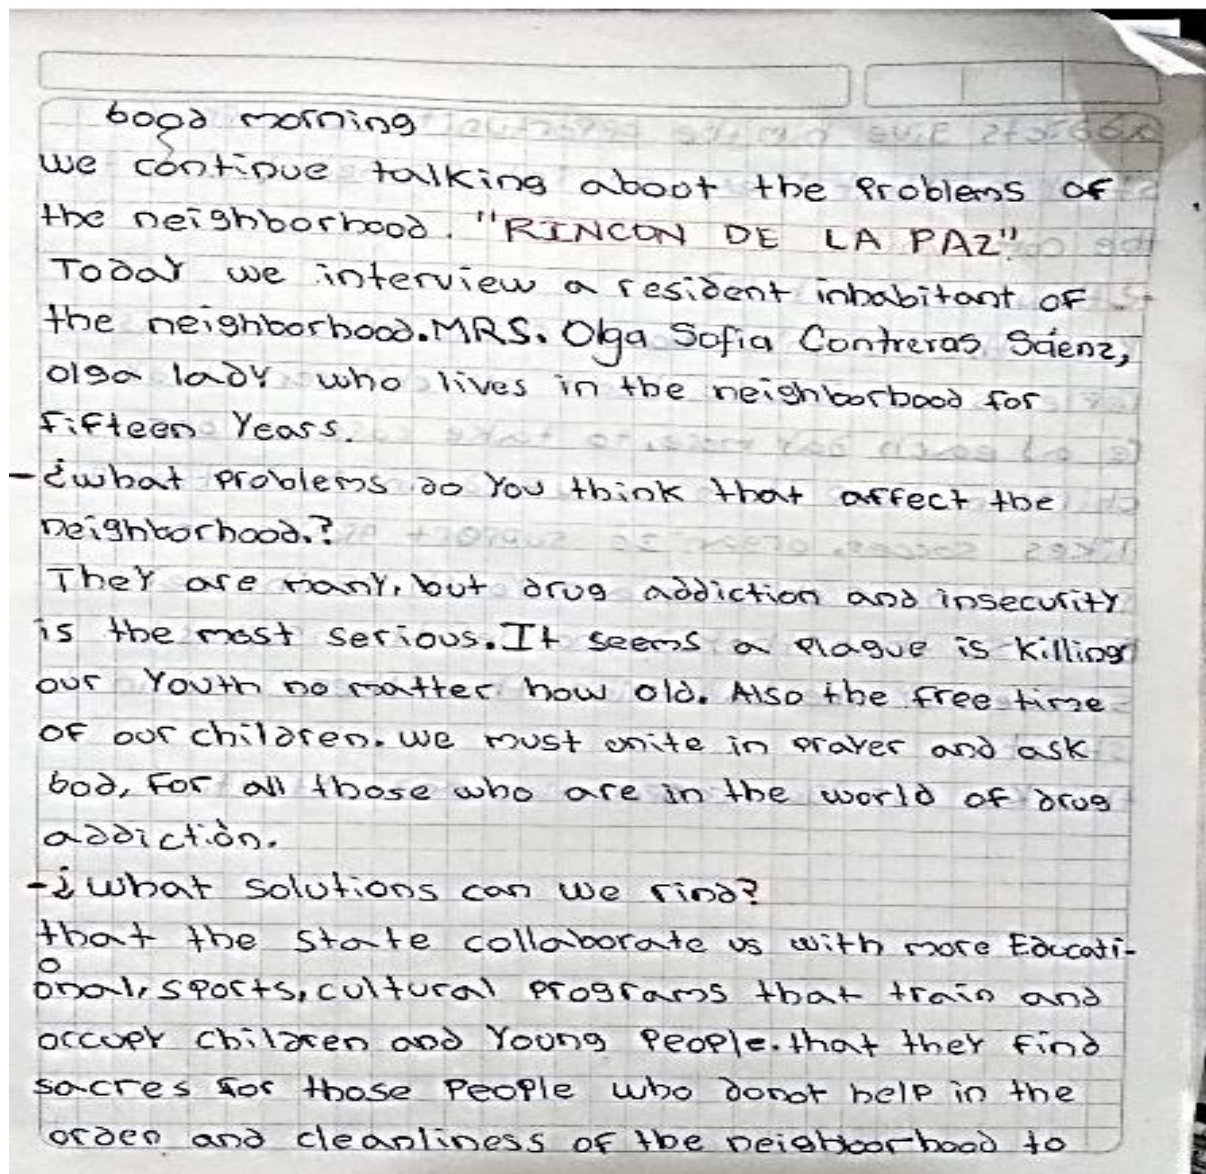 good morning
we continue talking about the problems of
the neighborhood. "RINCON DE LA PAZ"
Today we interview a resident inhabitant of
the neighborhood. MRS. Olga Sofia Contreras Sáenz,
olga lady who lives in the neighborhood for
fifteen Years.
- ¿what problems do You think that affect the
neighborhood.?
They are many, but drug addiction and insecurity
is the most serious. It seems a plague is killing
our Youth no matter how old. Also the free time
of our children. we must unite in prayer and ask
God, For all those who are in the world of drug
addiction.
- ¿what solutions can we find?
that the state collaborate us with more Educati-
onal, sports, cultural programs that train and
occupy children and Young People. that they find
sacres for those People who donot help in the
orden and cleanliness of the neighborhood to